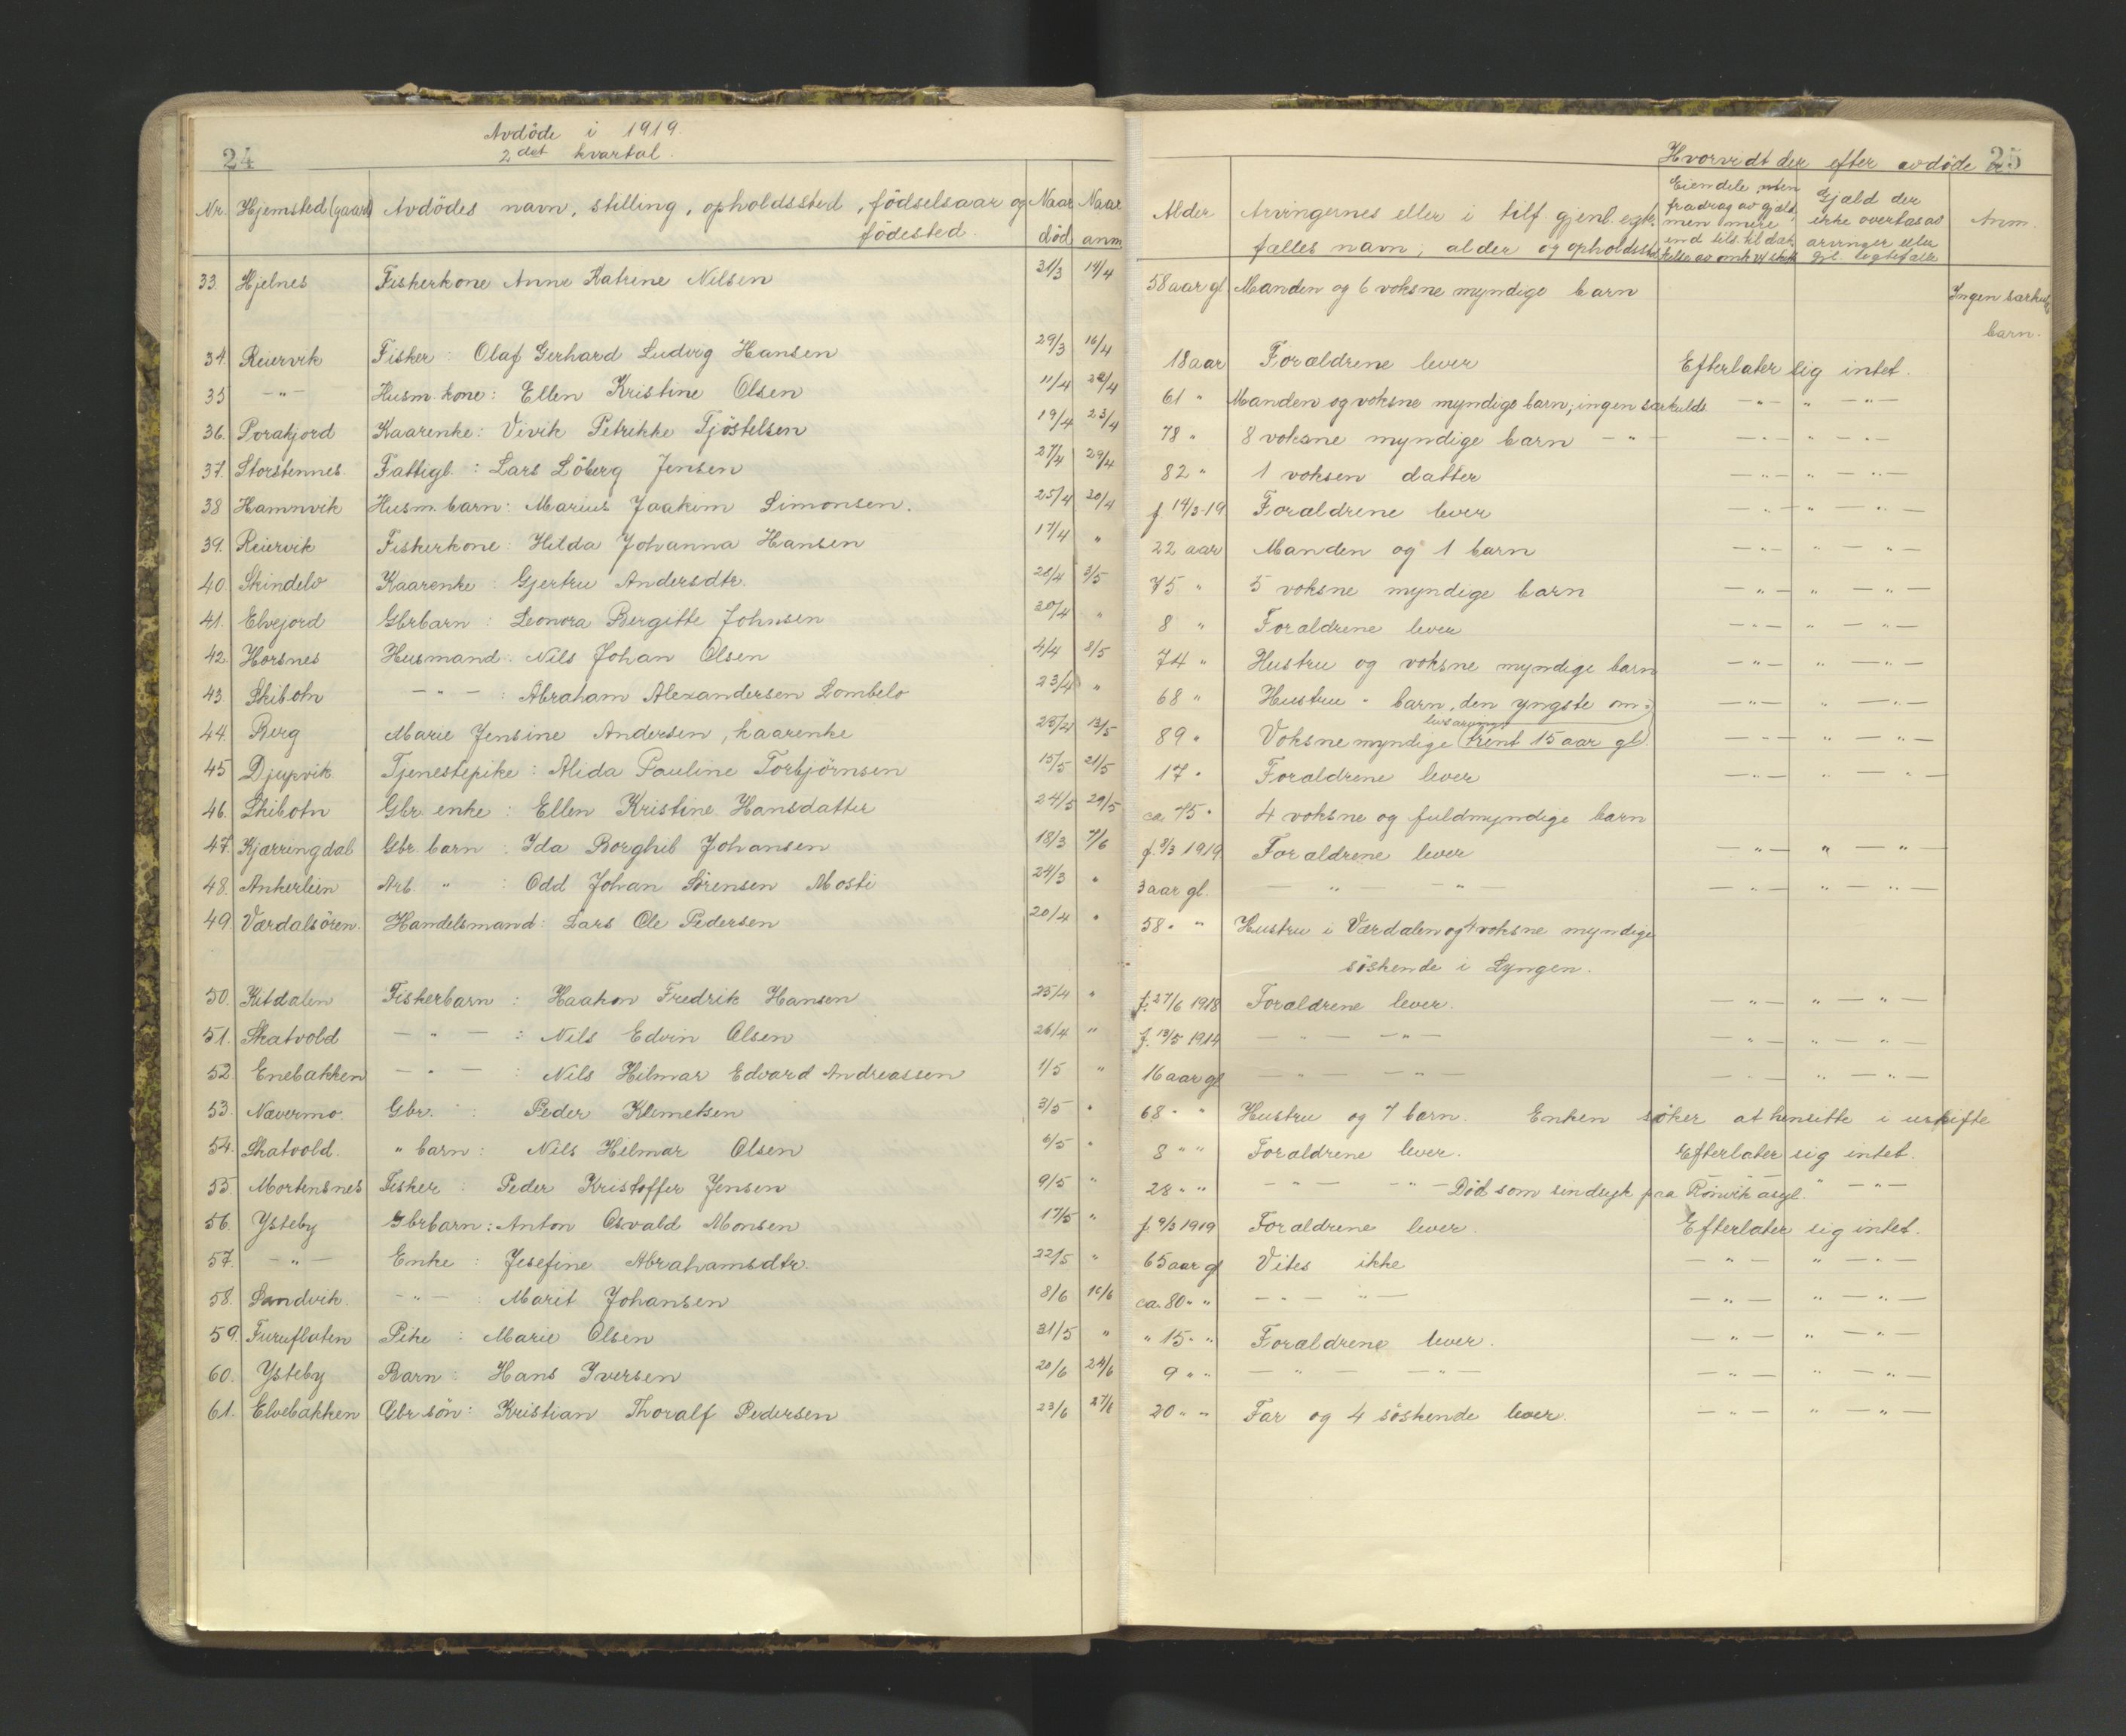 24
Avdöde i 1919.
2det kvartal.
Nr. Hjemsted (gaard) Avdödes navn, stilling, opholdssted, födselsaar og födested. Naar död Naar anm.
33. Hjelnes Fiskerkone Anne Katrine Nilsen 31/3 14/4
34. Reiervik Fisker: Olaf Gerhard Ludvig Hansen 29/3 16/4
35 — " — Husm. kone: Ellen Kristine Olsen 11/4 22/4
36. Porakjord Kaarenke: Vivik Petrikke Tjöstelsen 19/4 23/4
37. Storstennes Fattigl.: Lars Löberg Jensen 27/4 29/4
38 Hamnvik Husm. barn: Marius Joakim Simonsen. 25/4 20/4
39. Reiervik Fiskerkone: Hilda Johanna Hansen 17/4 "
40. Skindelv Kaarenke: Gjertru Andersdtr. 28/4 3/5
41. Elvejord Gbrbarn: Leonora Bergitte Johnsen 20/4 "
42. Horsnes Husmand: Nils Johan Olsen 4/4 8/5
43 Skibotn — " — : Abraham Alexandersen Lombelo 23/4 "
44. Berg Marie Jensine Andersen, kaarenke 23/4 13/5
45 Djupvik Tjenestepike: Alida Pauline Torbjörnsen 15/5 21/5
46. Skibotn Gbr. enke: Ellen Kristine Hansdatter 24/5 29/5
47. Kjærringdal Gbr. barn: Ida Borghil Johansen 18/3 7/6
48. Ankerlien Arb. " : Odd Johan Sörensen Mosti 24/3 "
49 Værdalsören. Handelsmand: Lars Ole Pedersen 20/4 "
50. Kitdalen Fiskerbarn: Haakon Fredrik Hansen 25/4 "
51. Skatvold — " — : Nils Edvin Olsen 26/4 "
52 Enebakken — " — : Nils Hilmar Edvard Andreassen 1/5 "
53. Nævermo. Gbr. : Peder Klemetsen 3/5 "
54. Skatvold. " barn: Nils Hilmar Olsen 6/5 "
55. Mortensnes Fisker: Peder Kristoffer Jensen 9/5 "
56. Ysteby Gbrbarn: Anton Osvald Monsen 17/5 "
57. — " — Enke: Josefine Abrahamsdtr. 22/5 "
58. Sandvik. — " — : Marit Johansen 8/6 16/6
59. Furuflaten Pike: Marie Olsen 31/5 "
60. Ysteby Barn: Hans Iversen 20/6 24/6
61. Elvebakken Gbr. sön: Kristian Thoralf Pedersen 23/6 27/6
25
Hvorvidt der efter avdöde er
Alder Arvingernes eller i tilf. gjenl. egte-
fælles navn, alder og opholdssted
Eiendele uten
fradrag av gjæld,
men mere
end tils. til dæk-
kelse av omk. v/ skifte
Gjæld der
ikke overtas av
arvinger eller
gjl. egtefælle
Anm.
58 aar gl. Manden og 6 voksne myndige barn Ingen særkuls
barn.
18 aar Forældrene lever Efterlater sig intet.
61 " Manden og voksne myndige barn, ingen særkulds — " — " — " —
78 " 8 voksne myndige barn — " — — " — " — " —
82 " 1 voksen datter — " — " — " —
f 14/3-19 Forældrene lever — " — " — " —
22 aar Manden og 1 barn — " — " — " —
75 " 5 voksne myndige barn — " — " — " —
8 " Forældrene lever — " — " — " —
74 " Hustru og voksne myndige barn — " — " — " —
68 " Hustru " barn, den yngste om- — " — " — " —
livsarvinger
89 " Voksne myndige (trent 15 aar gl. — " — " — " —
17 " Forældrene lever — " — " — " —
ca 75 " 4 voksne og fuldmyndige barn
f. 8/3 1919 Forældrene lever — " — " — " —
3 aar gl. — " — — " — — " — " — " —
58 " " Hustru i Værdalen og 4 voksne myndige
söskende i Lyngen.
f. 27/6 1918 Forældrene lever. — " — " — " —
f. 13/5 1914 — " — — " — — " — " — " —
16 aar gl — " — — " — — " — " — " —
68 " " Hustru og 7 barn. Enken söker at hensitte i uskifte
8 " " Forældrene lever. Efterlater sig intet.
28 " " — " — — " — Död som sindsyk paa Rönvik asyl. " — " —
f. 9/3 1919 Forældrene lever. Efterlater sig intet.
65 aar gl Vites ikke — " — " — " —
ca. 80 " " — " — " — — " — " — " —
" 15 " " Forældrene lever. — " — " — " —
9 " " — " — — " — — " — " — " —
20 " " Far og 4 söskende lever. — " — " — " —